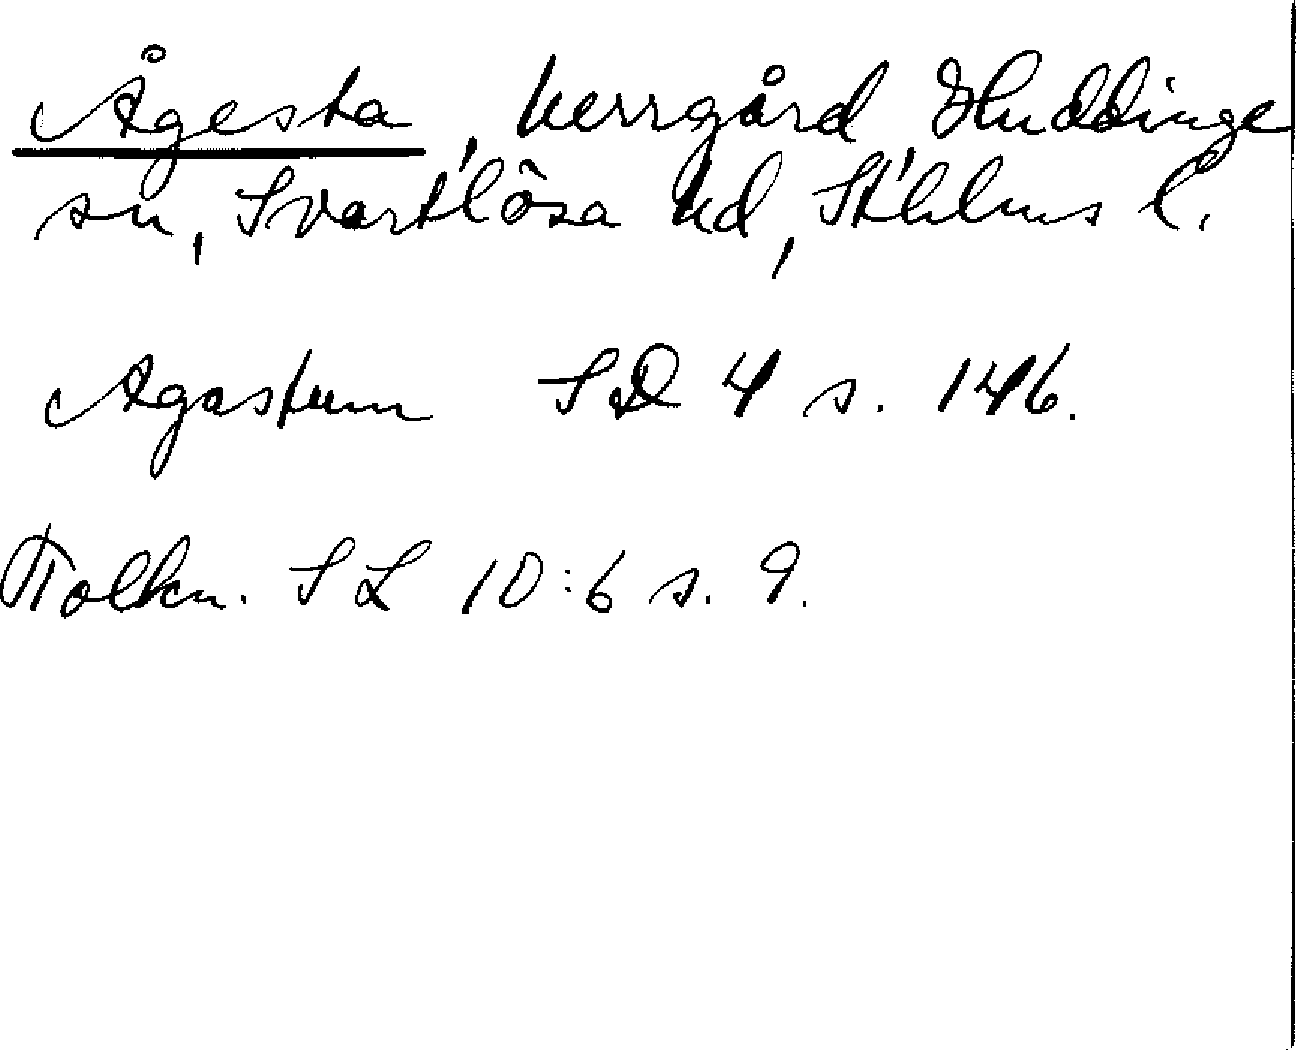 Ågesta, herrgård, Huddinge
sn, Svartlösa hd, Sthlms l.
Agastum SD 4 s. 146.
Tolkn. SL 10:6 s. 9.